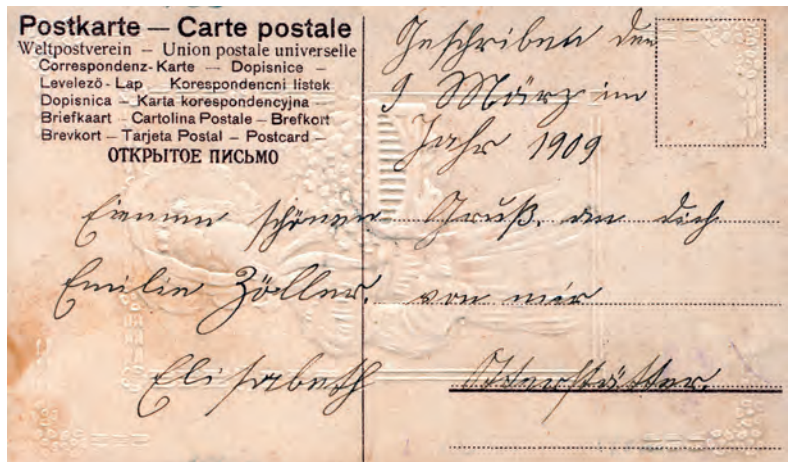 Postkarte — Carte postale
Weltpostverein – Union postale universelle
Correspondenz-Karte — Dopisnice –
Levelező-Lap – Korespondencni listek
Dopisnica – Karta korespondencyjna –
Briefkaart – Cartolina Postale – Brefkort
Brevkort – Tarjeta Postal – Postcard –
ОТКРЫТОЕ ПИСЬМО
Geschriben den
9 März im
Jahr 1909
Einnen schönen Gruß. an dich
Emilie Zöller. von mir
Elisabeth